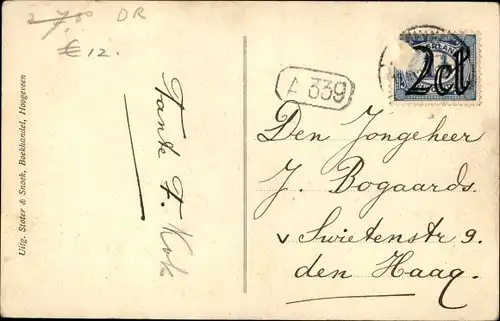 27,50 DR
€ 12.
Uitg. Stoter & Snoek, Boekhandel, Hoogeveen
Tante F. Kok
A 339
2ct
Den Jongeheer
J. Bogaards.
v Swietenstr 9.
den Haag.